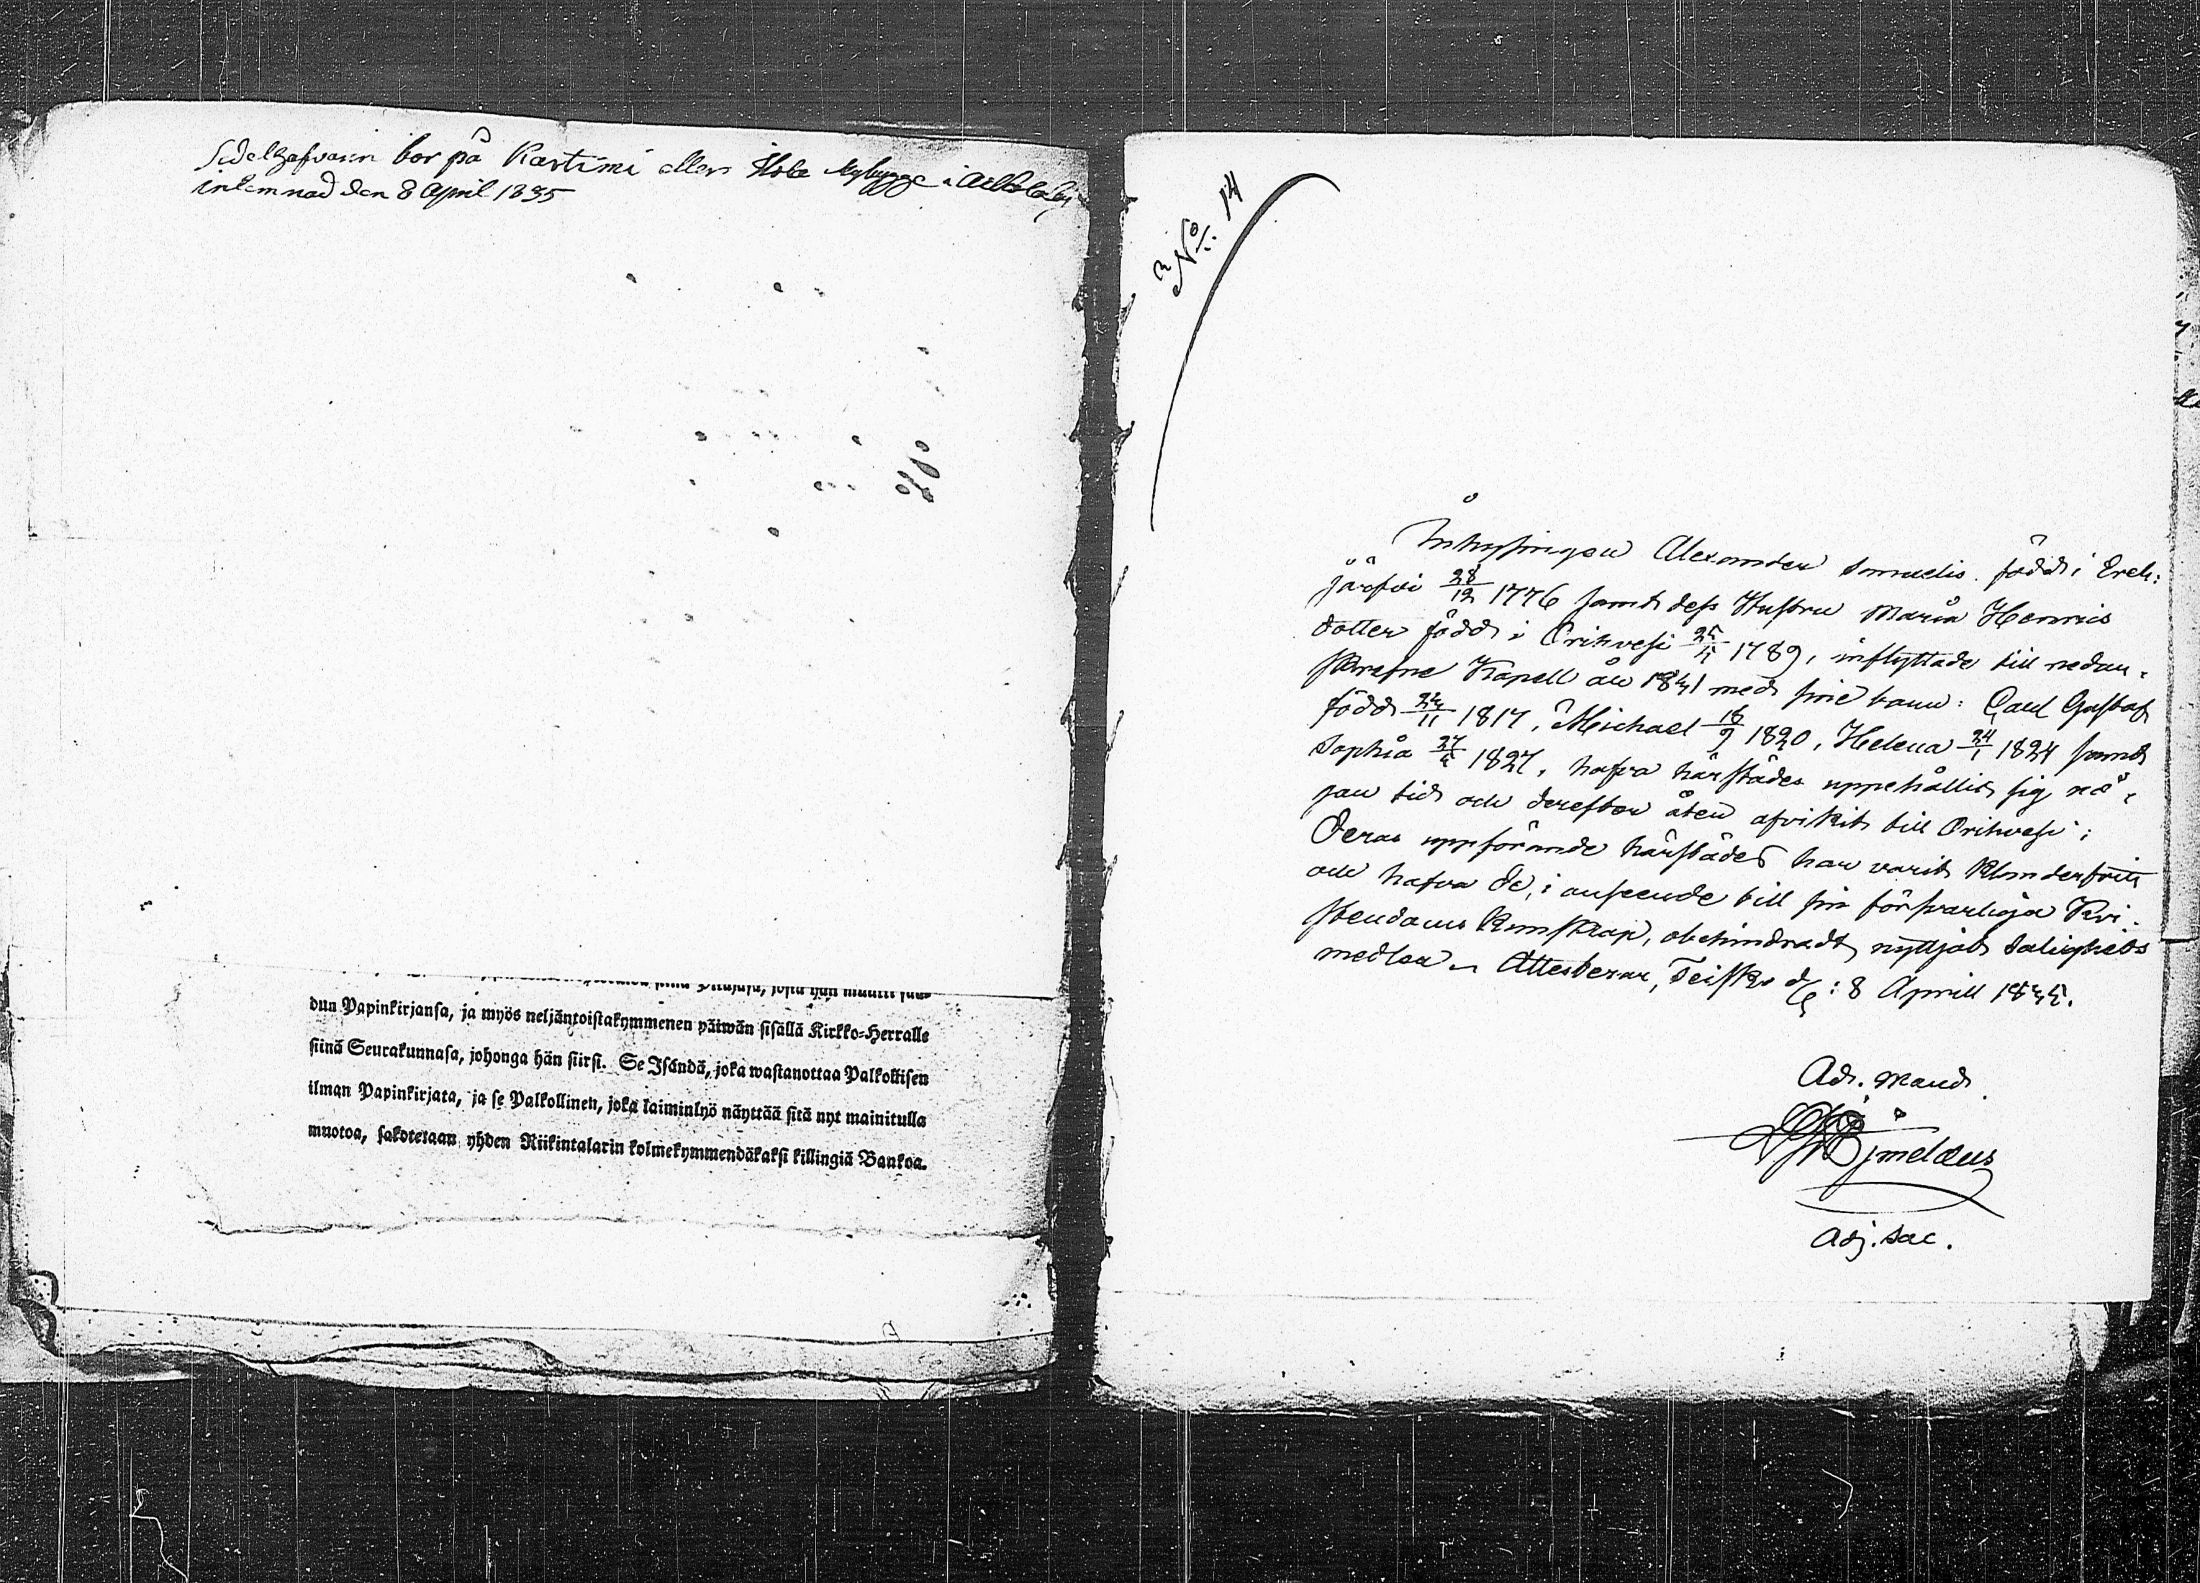 Sedelhafvaren bor på Kartimi eller Isola Nybygge i
inlemnad den 8 April 1835
dun Papinkirjansa, ja myös neljäntoistakymmenen päiwän sisällä Kirkko-Herralle
siinä Seurakunnasa, johonga hän siirsi. Se Isändä, joka wastanottaa Palkollisen
ilman Papinkirjata, ja se Palkollinen, joka laiminlyö näyttää sitä nyt mainitulla
muotoa, sakotetaan yhden Riikintalarin kolmekymmendäkaksi killingiä Bankoa.
No: 14
Inhysingen Alexander Samuelis. född i Ereh:
järfvi 28/12 1776 samt dess Hustru Maria Henrics
dotter född i Orihvesi 25/4 1789, inflyttade till nedan-
skrefne Kapell år 1831 med sine barn: Carl Gustaf
född 24/11 1817, Michael 16/9 1820, Helena 24/1 1824 samt
Sophia 27/4 1827, hafva härstädes uppehållit sig nå-
gan tid och derefter åter afvikit till Orihvesi;
Deras uppförande härstädes har varit klanderfritt
och hafva de, i anseende till sin försvarliga Kri-
stendoms kunskap, obehindradt nyttjat Salighets
medlen. Attesterar, Teisko d: 8 April 1835.
Ad. Mand.
Björnelæus
Adj. Sac.